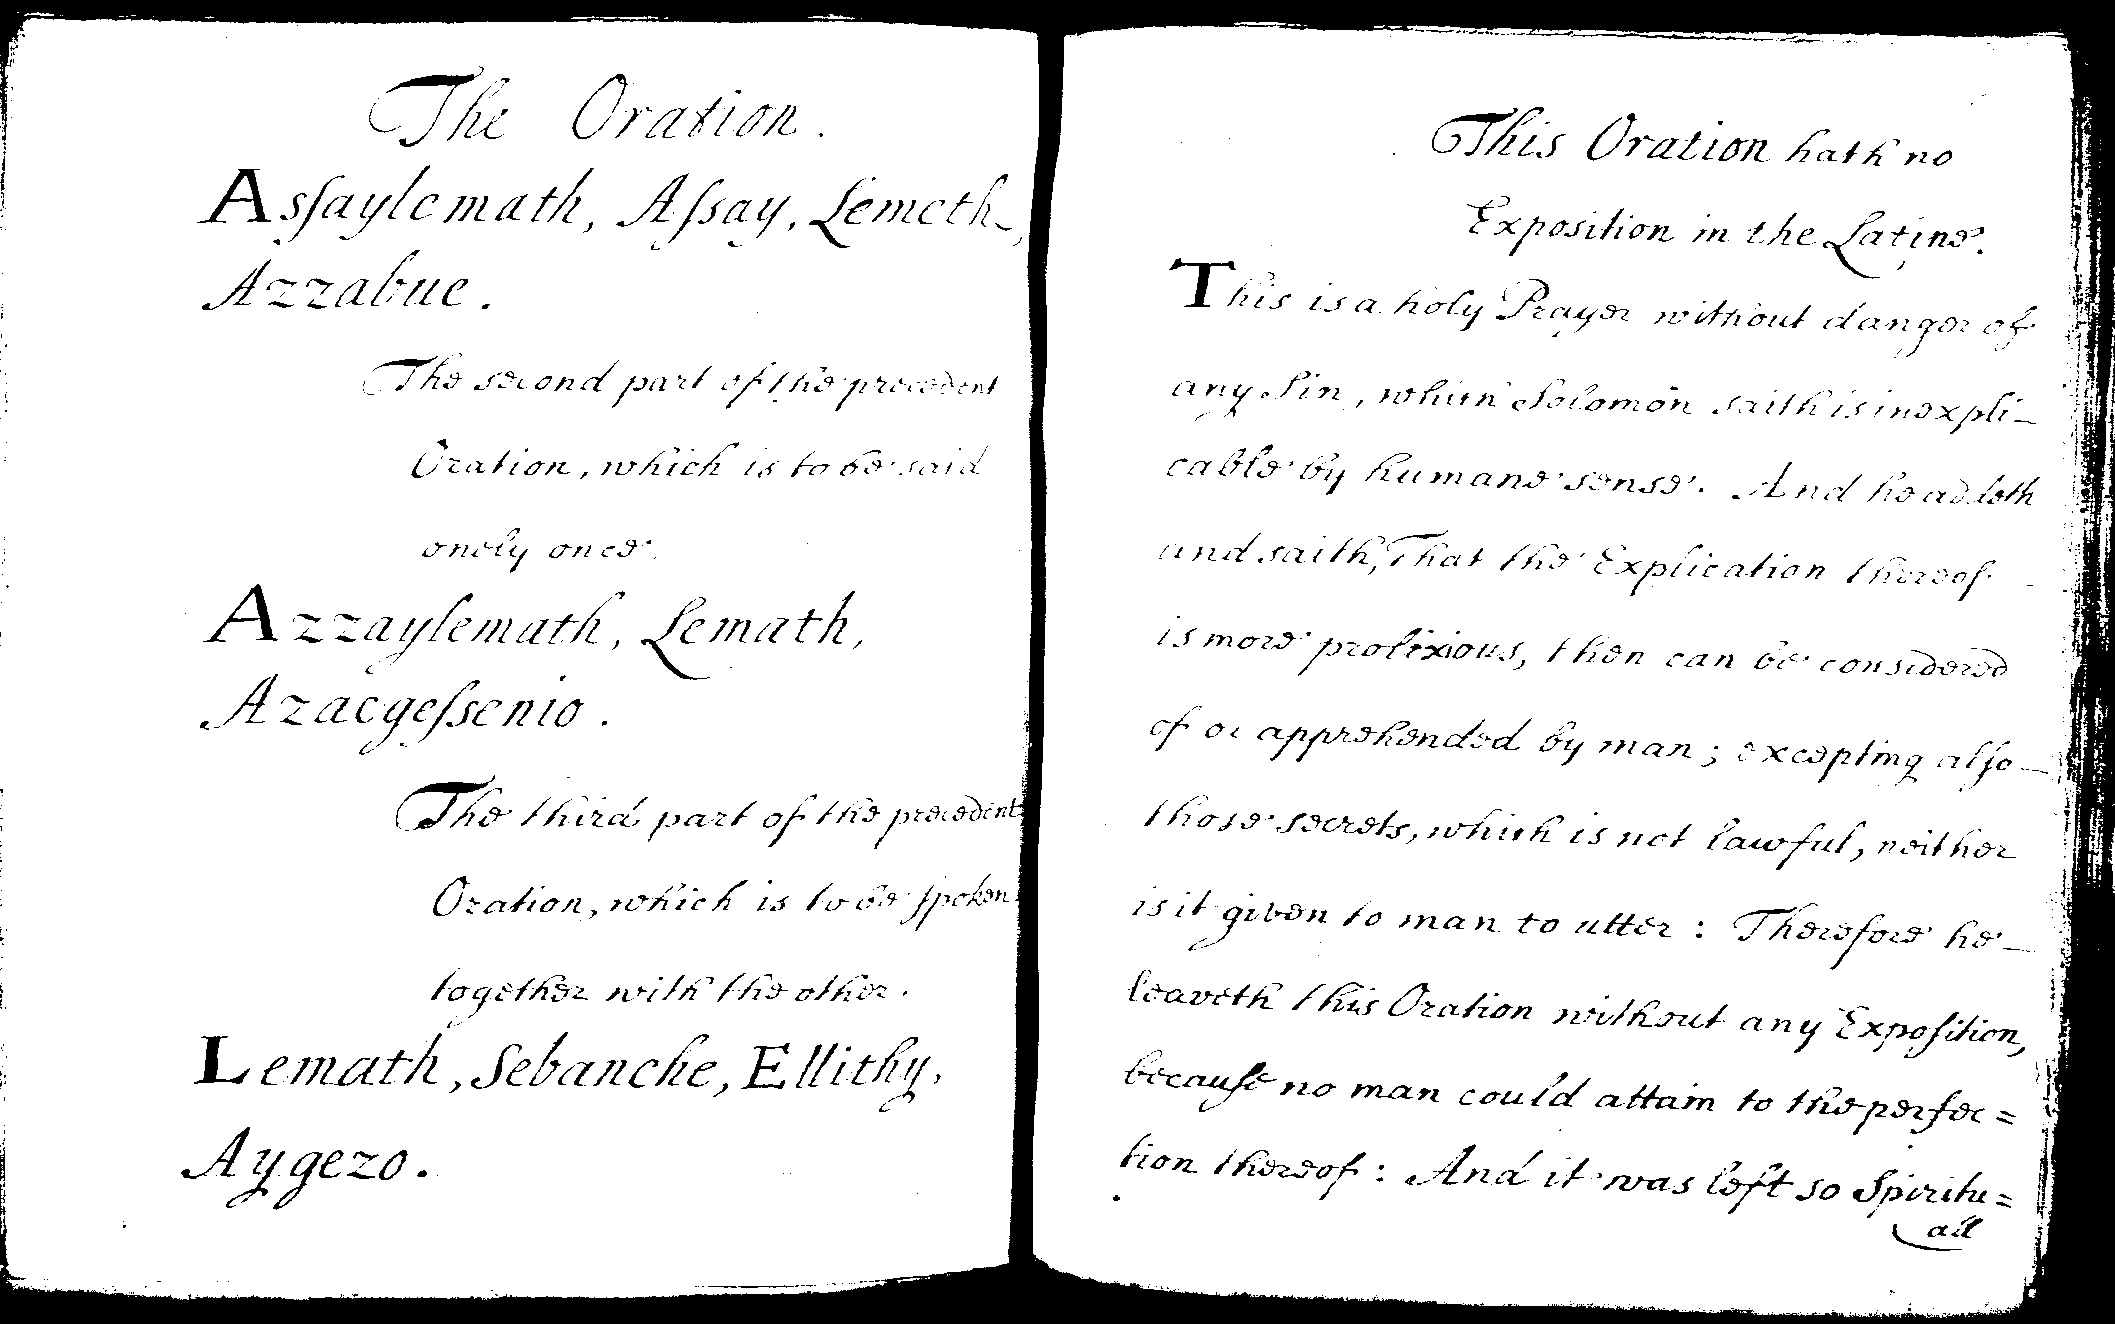 The Oration.
Assaylemath, Assay, Lemeth,
Azzabue.
The second part of the precedent
Oration, which is to be said
onely once.
Azzaylemath, Lemath,
Azacgessenio.
The third part of the precedent
Oration, which is to be spoken
together with the other.
Lemath, Sebanche, Ellithy,
Aygezo.
This Oration hath no
Exposition in the Latine.
This is a holy Prayer without danger of
any Sin, which Solomon saith is inexpli-
cable by humane sense. And he addeth
and saith, That the Explication thereof
is more prolixious, then can be considered
of or apprehended by man; excepting also
those secrets, which is not lawful, neither
is it given to man to utter: Therefore he
leaveth this Oration without any Exposition,
because no man could attain to the perfec=
tion thereof: And it was left so Spiritu=
all